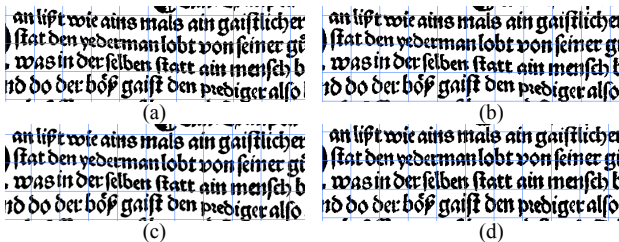 an lißt wie ains mals ain gaiſtlicher
ſtat den yederman lobt von ſeiner
was in der ſelben ſtatt ain menſch
nd do der böß gaiſt den prediger alſo
(a)
an lißt wie ains mals ain gaiſtlicher
ſtat den yederman lobt von ſeiner
was in der ſelben ſtatt ain menſch
nd do der böß gaiſt den prediger alſo
(b)
an lißt wie ains mals ain gaiſtlicher
ſtat den yederman lobt von ſeiner
was in der ſelben ſtatt ain menſch
nd do der böß gaiſt den prediger alſo
(c)
an lißt wie ains mals ain gaiſtlicher
ſtat den yederman lobt von ſeiner
was in der ſelben ſtatt ain menſch
nd do der böß gaiſt den prediger alſo
(d)